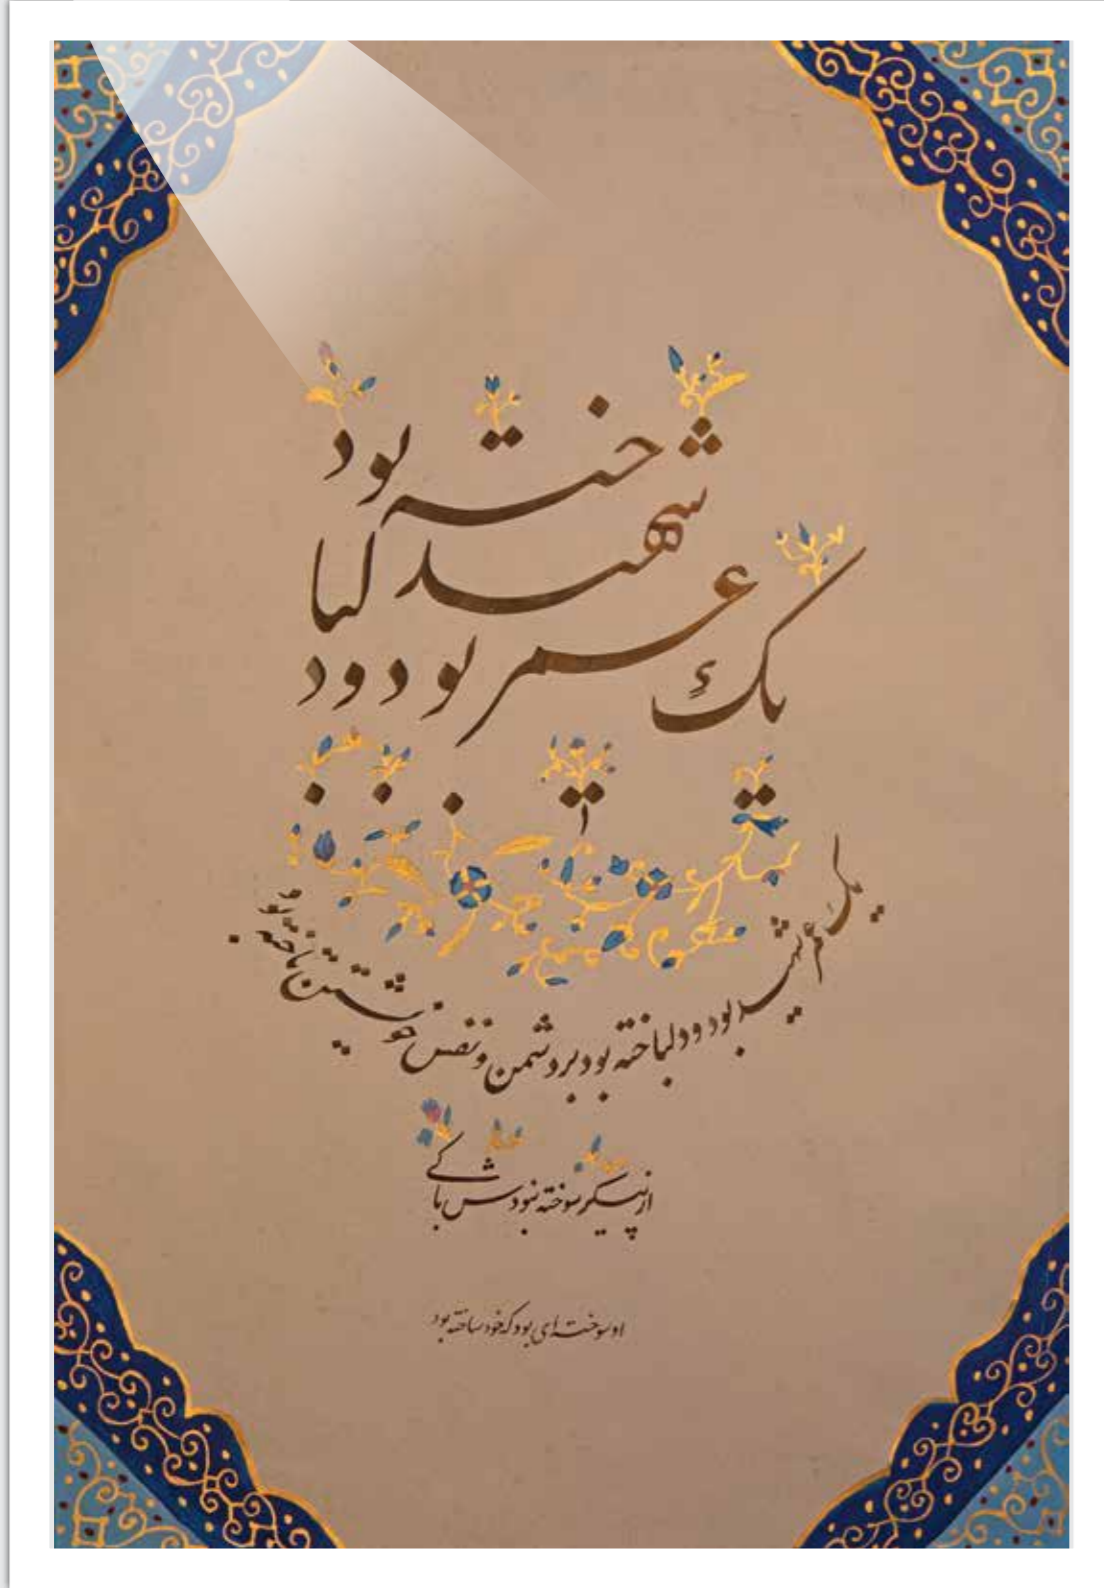 یک عمر شهید بود و دلباخته بود
یک عمر شهید بود و دلباخته بود بر دشمن و نفس خویشتن تاخته بود
از پیکر سوخته نبودش باکی
او سوخته‌ای بود که خود ساخته بود